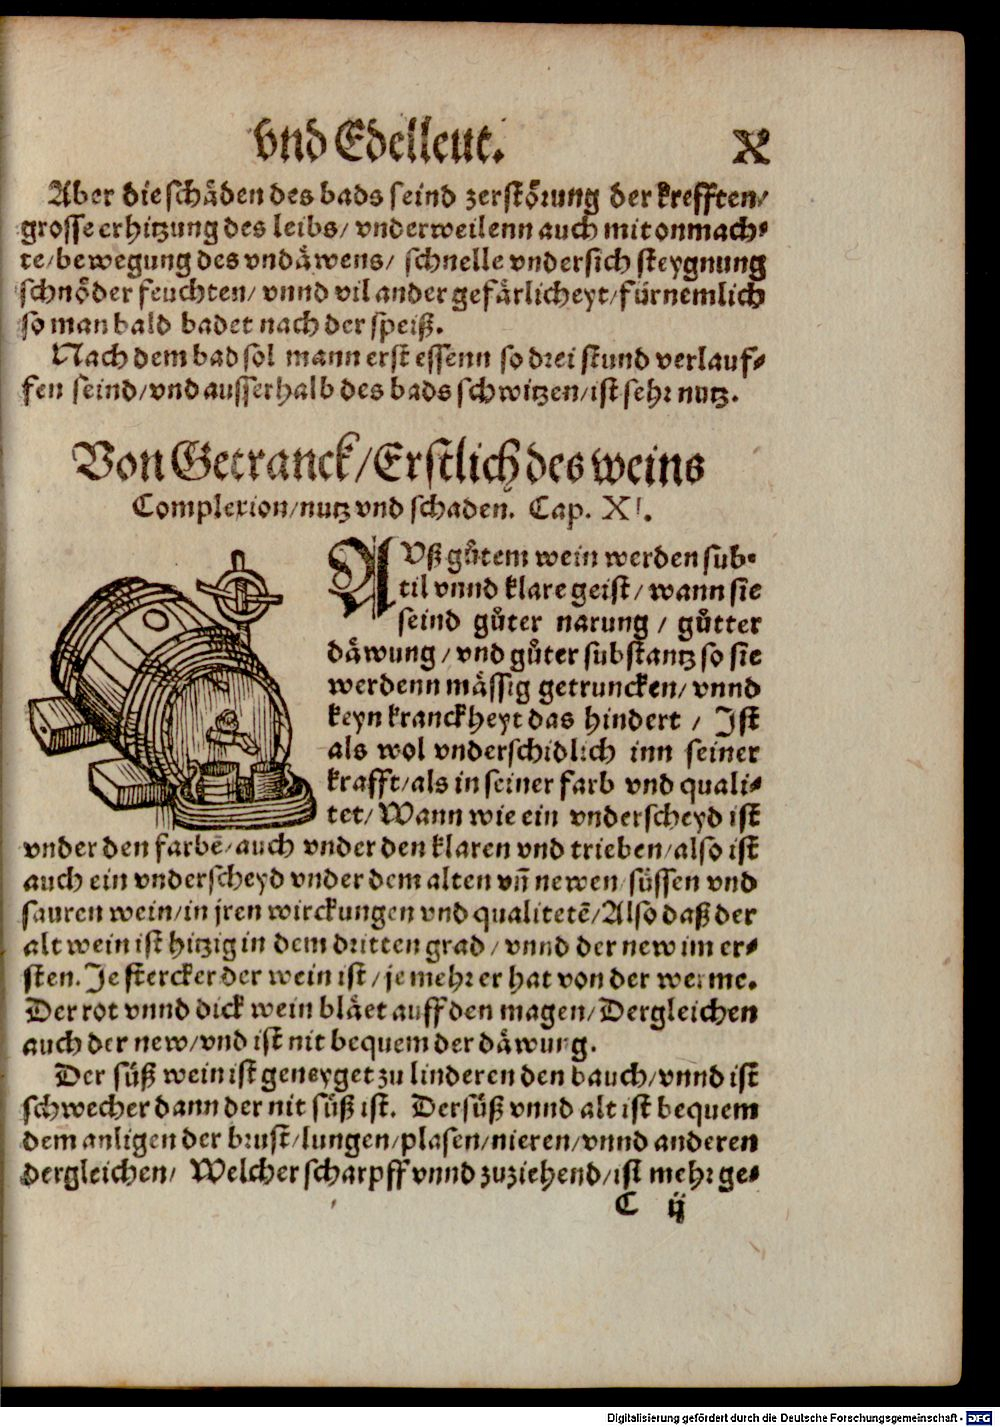 vnd Edelleut. X
Aber die schäden des bads seind zerstörung der krefften/
grosse erhitzung des leibs/ vnderweilenn auch mit onmach⸗
te/ bewegung des vndäwens/ schnelle vndersich steygnung
schnöder feuchten/ vnnd vil ander gefärlicheyt/ fürnemlich
so man bald badet nach der speiß.
Nach dem bad sol mann erst essenn so drei stund verlauf⸗
fen seind/ vnd ausserhalb des bads schwitzen/ ist sehr nutz.
Von Getranck/ Erstlich des weins
Complexion/ nutz vnd schaden. Cap. XI.
AVß gůtem wein werden sub⸗
til vnnd klare geist/ wann sie
seind gůter narung/ gůtter
däwung/ vnd gůter substantz so sie
werdenn mässig getruncken/ vnnd
keyn kranckheyt das hindert/ Ist
als wol vnderschidlich inn seiner
krafft/ als in seiner farb vnd quali⸗
tet/ Wann wie ein vnderscheyd ist
vnder den farbē/ auch vnder den klaren vnd trieben/ also ist
auch ein vnderscheyd vnder dem alten vñ newen/ süssen vnd
sauren wein/ in jren wirckungen vnd qualitetē/ Also daß der
alt wein ist hitzig in dem dritten grad/ vnnd der new im er⸗
sten. Je stercker der wein ist/ je mehr er hat von der werme.
Der rot vnnd dick wein bläet auff den magen/ Dergleichen
auch der new/ vnd ist nit bequem der däwung.
Der süß wein ist geneyget zu linderen den bauch/ vnnd ist
schwecher dann der nit süß ist. Der süß vnnd alt ist bequem
dem anligen der brust/ lungen/ plasen/ nieren/ vnnd anderen
dergleichen/ Welcher scharpff vnnd zuziehend/ ist mehr ge⸗
C ij
Digitalisierung gefördert durch die Deutsche Forschungsgemeinschaft - DFG